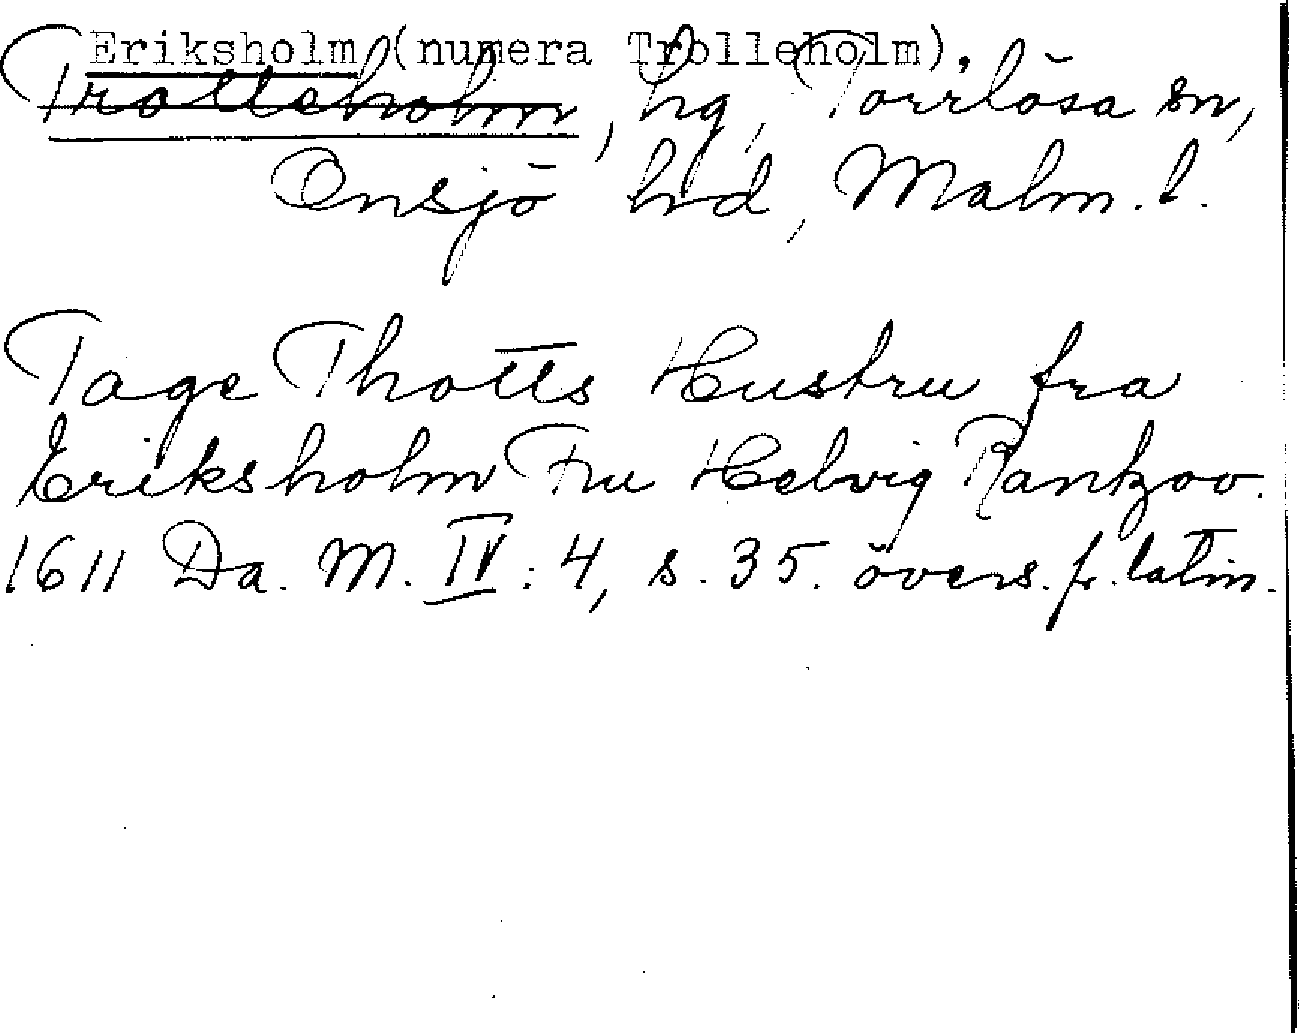 Eriksholm (numera Trolleholm).
Trolleholm, hg, Torrlösa sn,
Onsjö hd, Malm. l.
Tage Thotts Hustru fra
Eriksholm Fru Helvig Rantzov.
1611 Da. M. IV: 4, s. 35. övers. fr. latin.